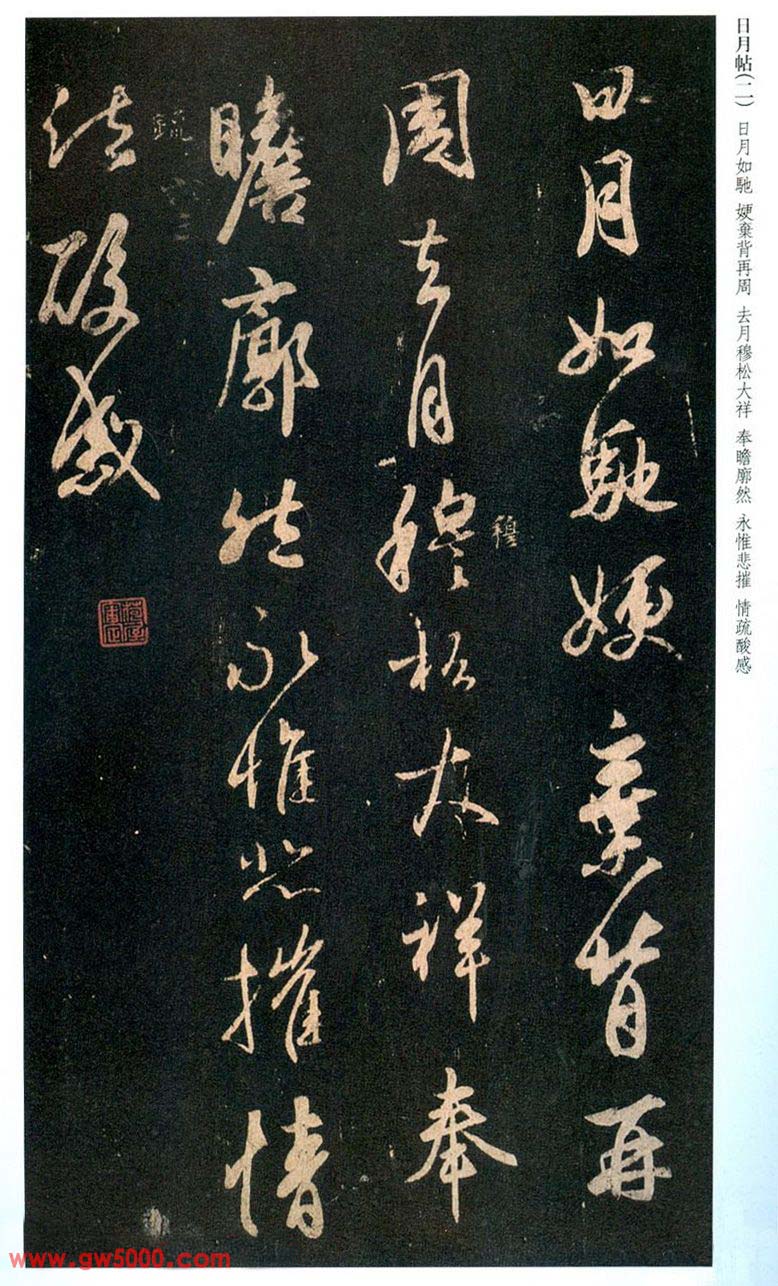 日月帖(二) 日月如馳 㛐棄背再周 去月穆松大祥 奉瞻廓然 永惟悲摧 情疏酸感
日月如馳㛐棄背再
周去月穆松大祥奉
穆
瞻廓然永惟悲摧情
疏
疏酸感
www.gw5000.com